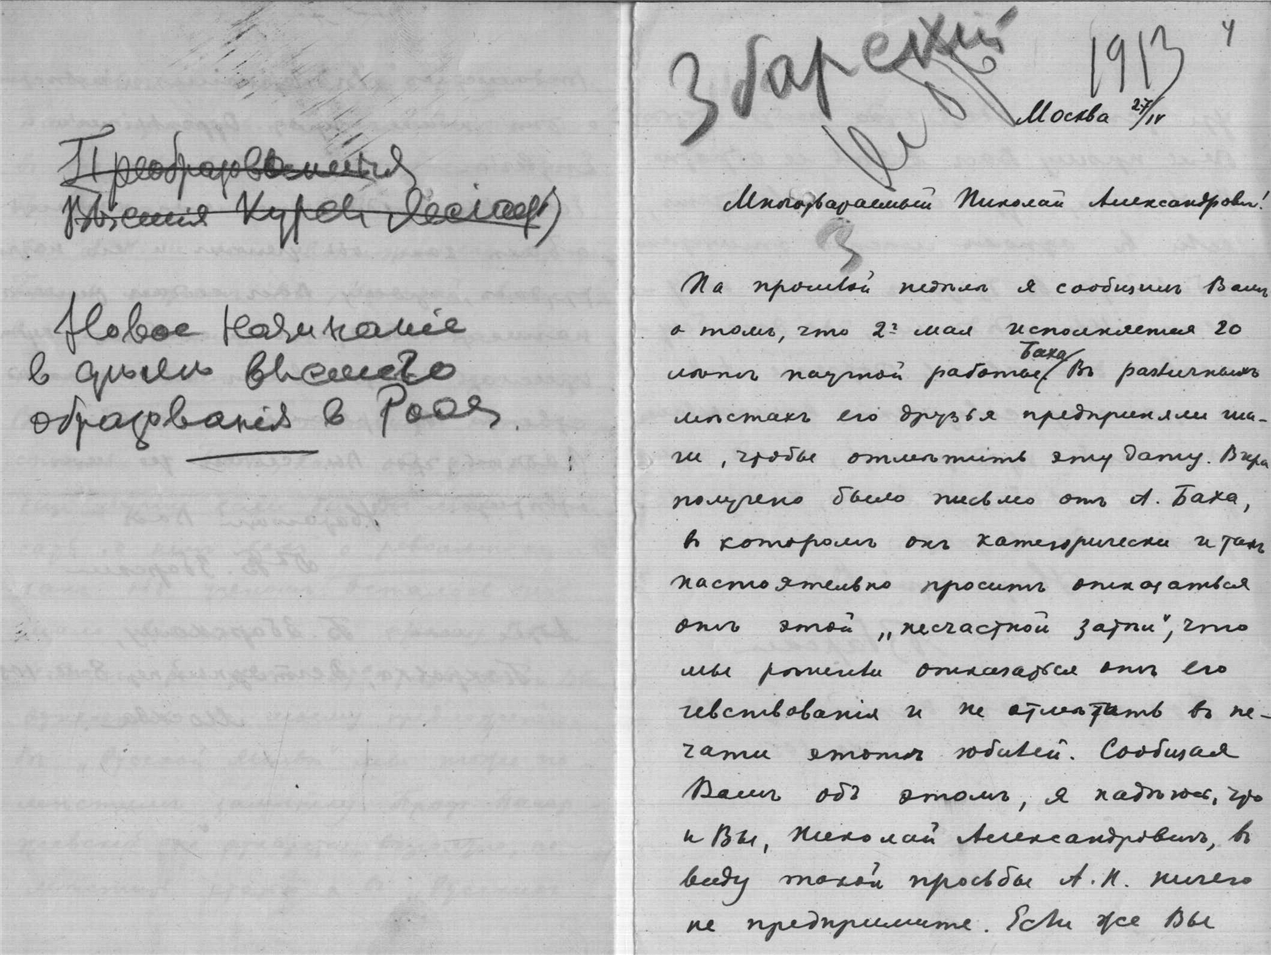 Преобразованія
Высшія Курсы
Новое начинаніе
в дѣлѣ высшаго
образованія в Росс.
Збарский
1913
4
Москва 27/IV
Многоуважаемый Николай Александровичъ!
На прошлой недѣлѣ я сообщилъ Вамъ
о томъ, что 2го мая исполняется 20
лѣтъ научной работы Баха. Въ различныхъ
мѣстахъ его друзья предприняли ша-
ги, чтобы отмѣтить эту дату. Вчера
получено было письмо отъ А. Баха,
въ которомъ онъ категорически и такъ
настоятельно проситъ отказаться
отъ этой „несчастной затѣи“, что
мы рѣшили отказаться отъ его
чевствованія и не отмѣтать въ пе-
чати этотъ юбилей. Сообщая
Вамъ объ этомъ, я надѣюсь, что
и Вы, Николай Александровичъ, въ
виду такой просьбы А. Н. ничего
не предпримите. Если же Вы